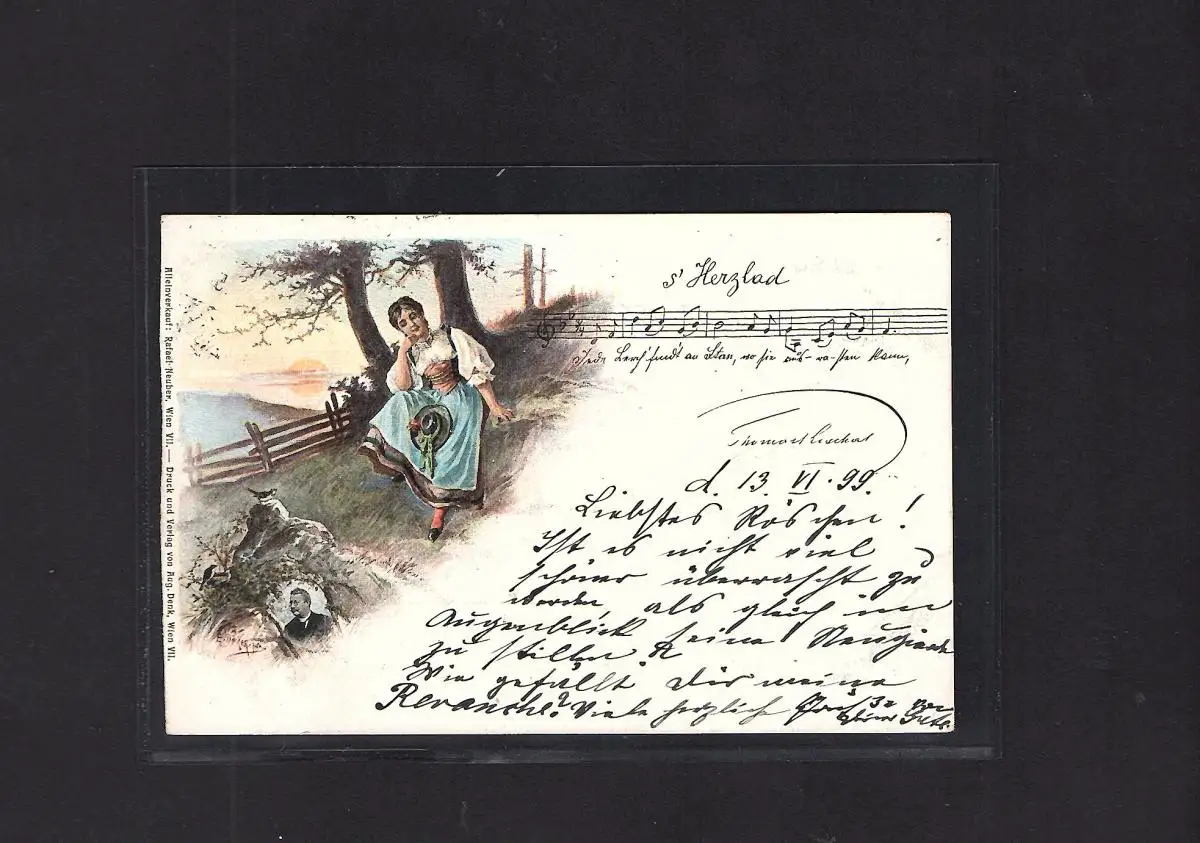 Alleinverkauf: Rafael Neuber, Wien VII. — Druck und Verlag von Aug. Denk, Wien VII.
s' Herzlad
Jede Lerch' find't an Stan, wo sie aus-ra-sten kann,
Thomas Koschat
d. 13. VI. 99.
Liebstes Röschen!
Ist es nicht viel
schöner überrascht zu
werden, als gleich im
Augenblick seine Neugierde
zu stillen
Wie gefällt Dir meine
Revanche? Viele herzliche